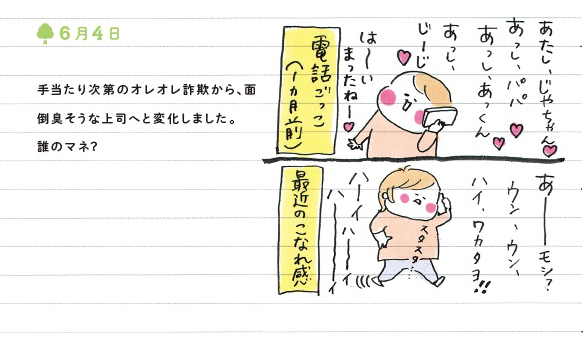 6月4日
手当たり次第のオレオレ詐欺から、面
倒臭そうな上司へと変化しました。
誰のマネ?
電話ごっこ
(1ヵ月前)
あたし、じゃちゃん
あっし、パパ
あっし、あっくん
あっし、
じーじ
は〜い
まったねー
最近のこなれ感
あーーモシ?
ウン、ウン、
ハイ、ワカタヨ!!
スタスタ…
ハーイハーーイ
ハーーーーイ